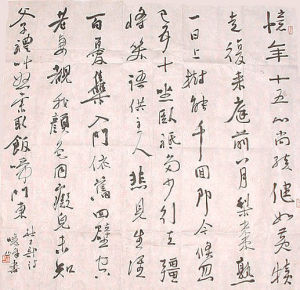 憶年十五心尚孩健如黄犢
走復来庭前八月梨棗熟
一日上樹能千回即今倏忽
已五十坐卧祇多少行立彊
將笑語供主人悲見生涯
百憂集入門依舊四壁空
老妻覩我顔色同癡兒未知
父子禮叫怒索飯啼門東
杜工部詩